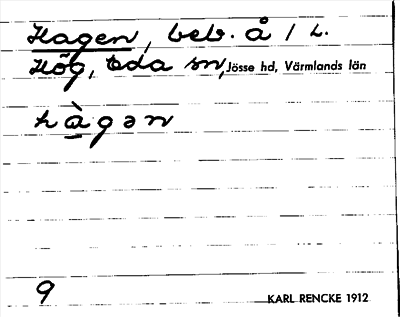 Hagen, beb. å 1 L.
Hög, Eda sn, Jösse hd, Värmlands län
hàgən
9
KARL RENCKE 1912